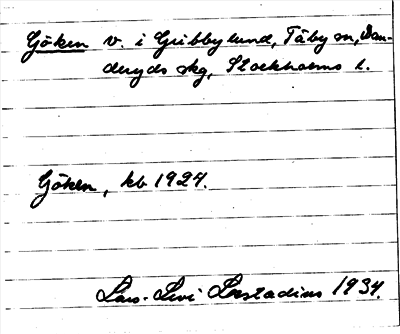 Göken v. i Gribbylund, Täby sn, Dan-
deryds skg, Stockholms l.
Göken, kb 1924.
Lars-Levi Læstadius 1934.